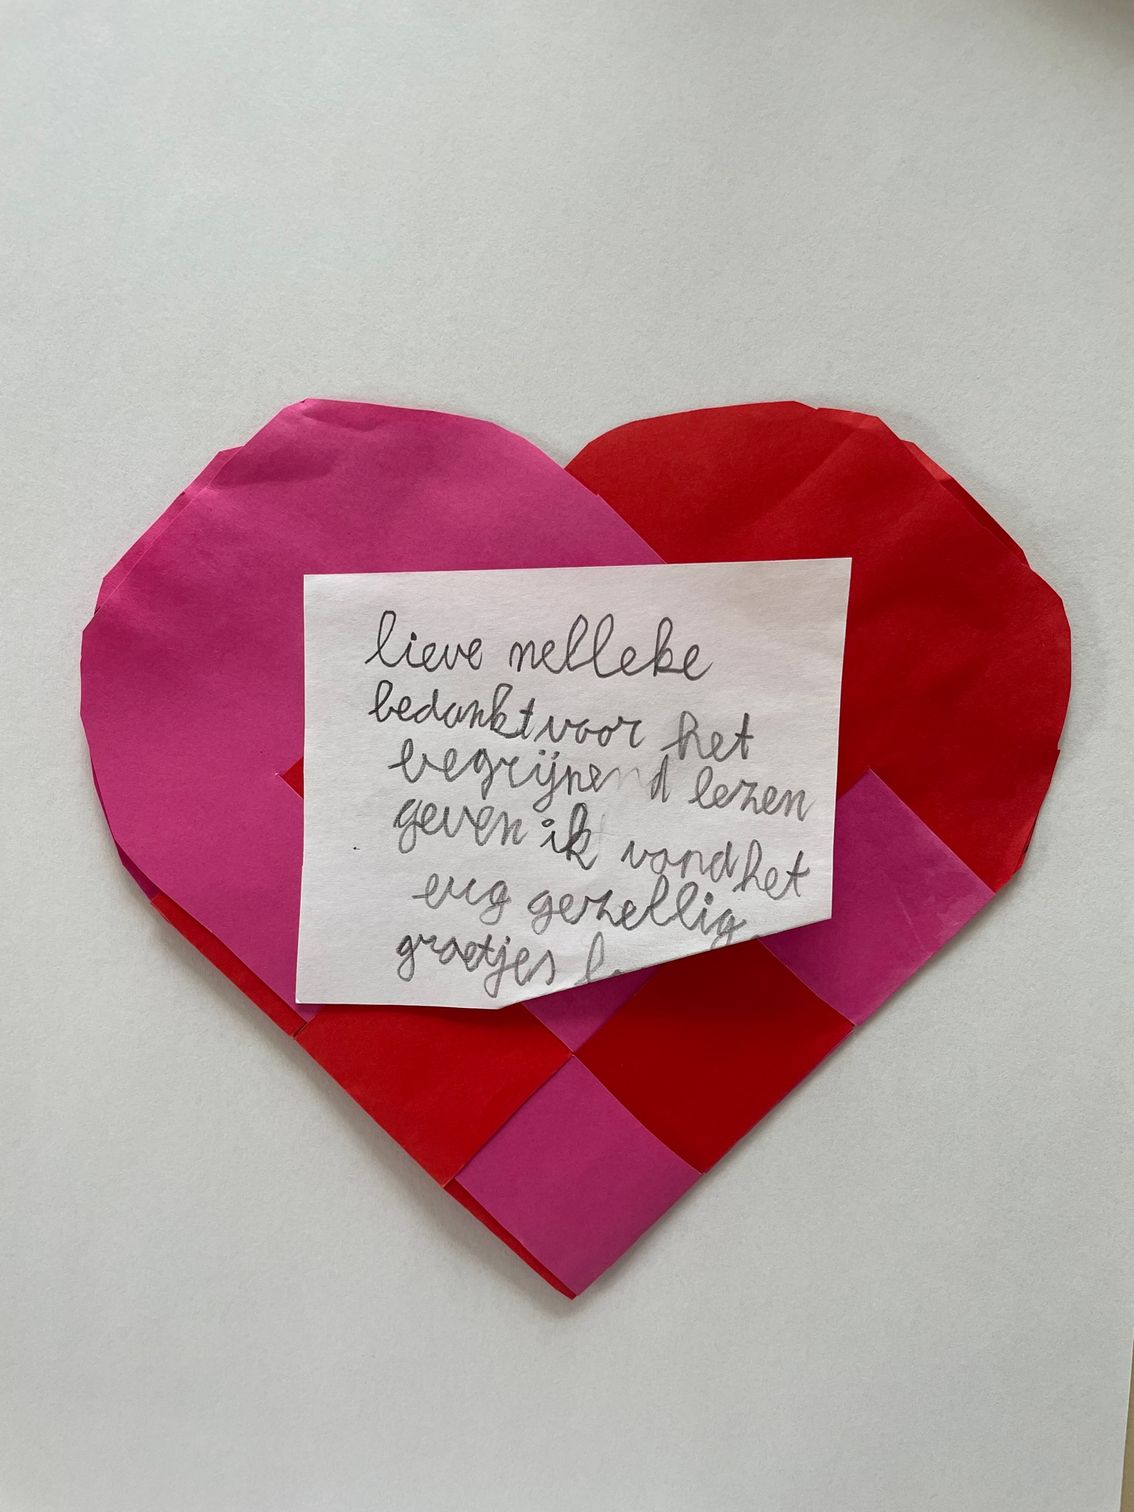 lieve nelleke
bedankt voor het
begrijpend lezen
geven ik vond het
erg gezellig
groetjes